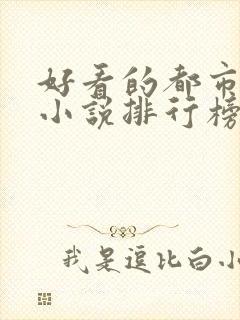 好看的都市
小说排行榜
我是逗比白小